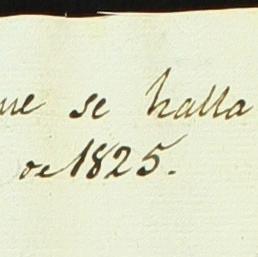 ue se halla
de 1825.